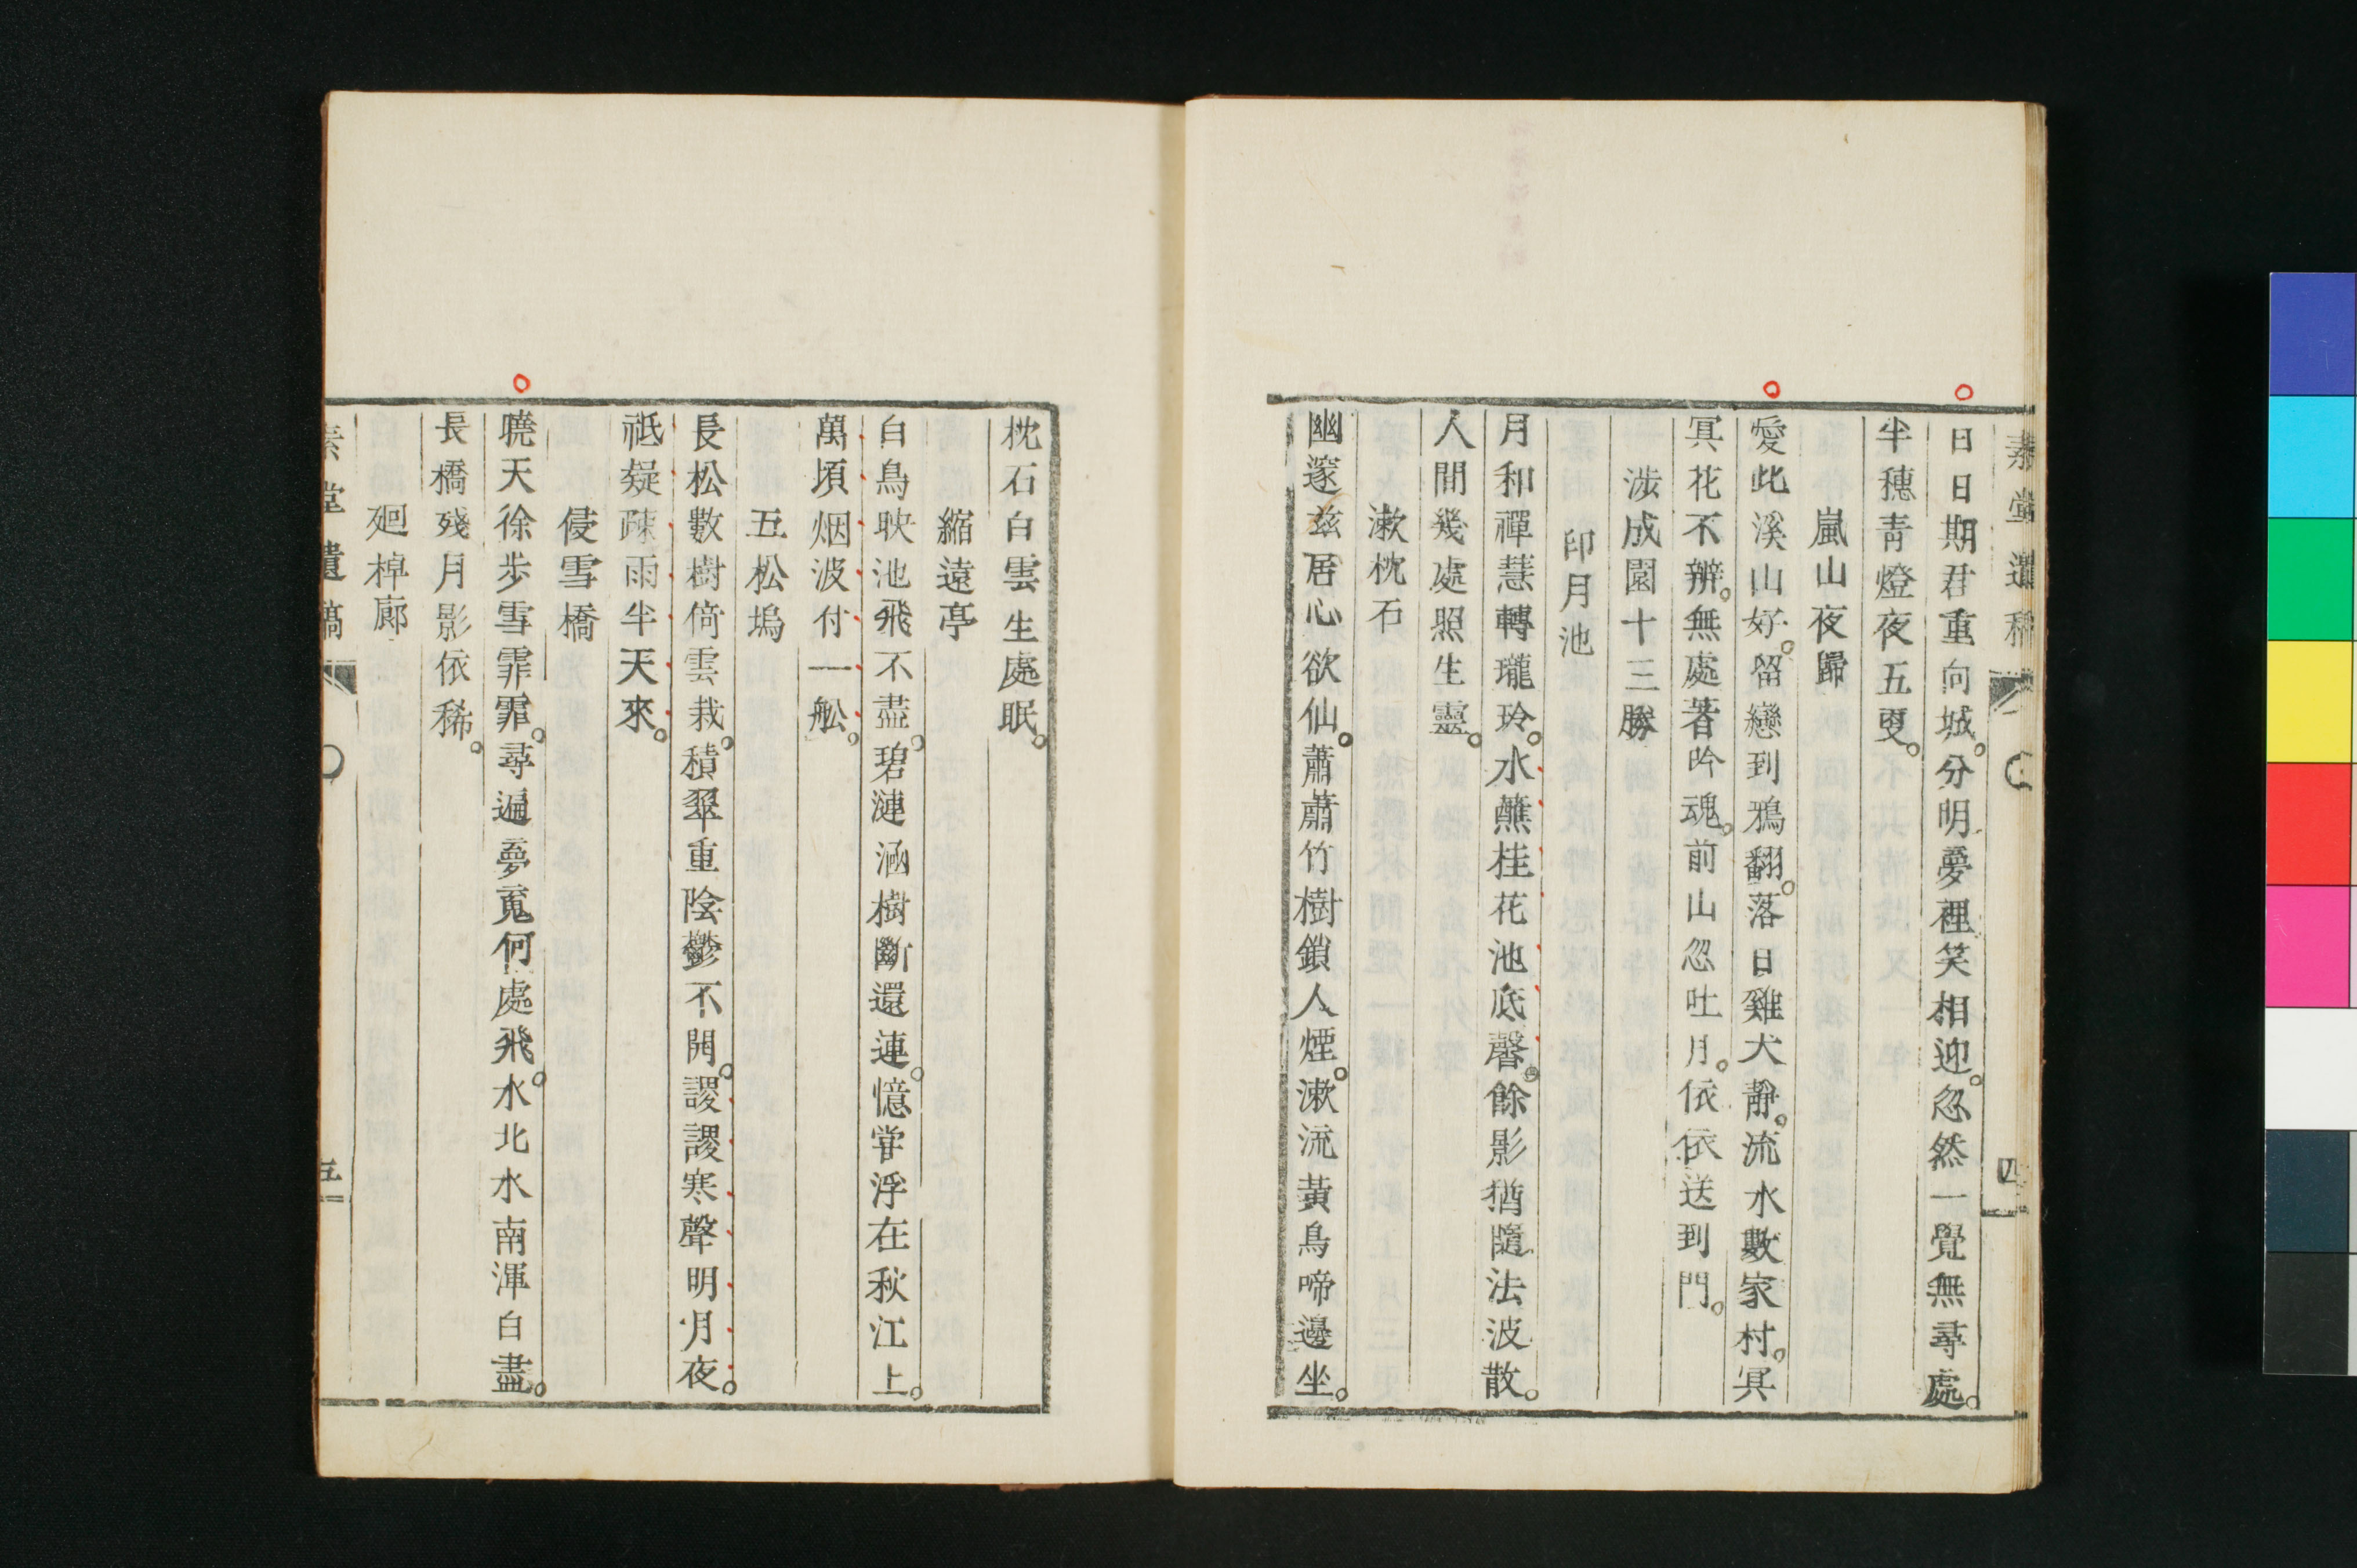 素堂遺稿 四
日日期君重向城。分明夢裡笑相迎。忽然一覺無尋處。
半穗青燈夜五更。
嵐山夜歸
愛此溪山好。留戀到鴉翻。落日雞犬靜。流水數家村。冥
冥花不辨。無處著吟魂。前山忽吐月。依依送到門。
涉成園十三勝
印月池
月和禪慧轉瓏玲。水蘸桂花池底馨。餘影猶隨法波散。
人間幾處照生靈。
漱枕石
幽邃茲居心欲仙。蕭蕭竹樹鎖人煙。漱流黃鳥啼邊坐。
枕石白雲生處眠。
縮遠亭
白鳥映池飛不盡。碧漣涵樹斷還連。憶嘗浮在秋江上。
萬頃烟波付一舩。
五松塢
長松數樹倚雲栽。積翠重陰鬱不開。謖謖寒聲明月夜。
祗疑疎雨半天來。
侵雪橋
曉天徐步雪霏霏。尋遍夢魂何處飛。水北水南渾白盡。
長橋殘月影依稀。
廻棹廊
素堂遺稿 五